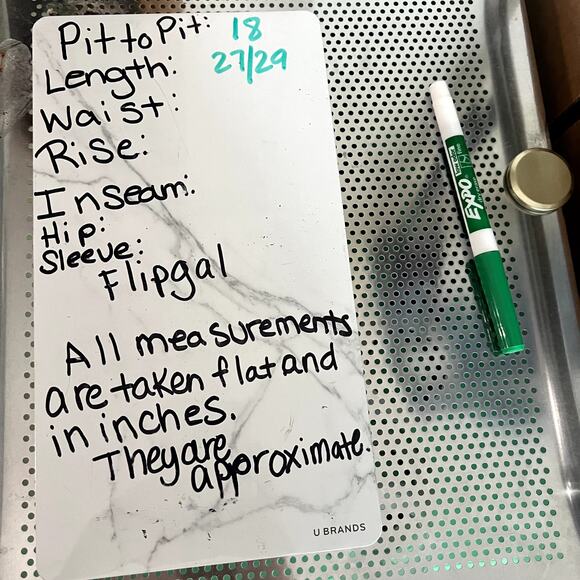 Pit to Pit: 18
Length: 27/29
Waist:
Rise:
Inseam:
Hip:
Sleeve:
Flipgal
All measurements
are taken flat and
in inches.
They are
approximate.
U BRANDS
EXPO